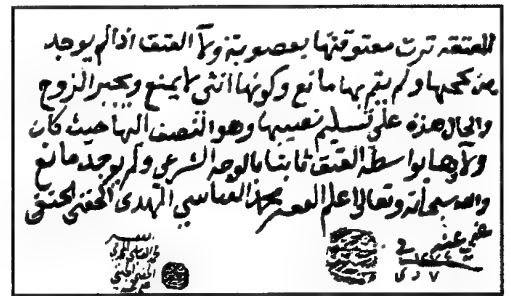 المعتقه ترث معتوقتها بعصوبة ولاء العتق اذا لم يوجد
من يحجبها ولم يقم بها مانع وكونها انثى لا يمنع ويجبر الزوج
والحال هذه على تسليم نصيبها وهو النصف اليها حيث كان
ولاءها بواسطة العتق ثابتا بالوجه الشرعى ولم يوجد مانع
والله سبحانه وتعالى اعلم الفقير محمد العباسي المهدى الحفنى الحنفى
عفى عنه